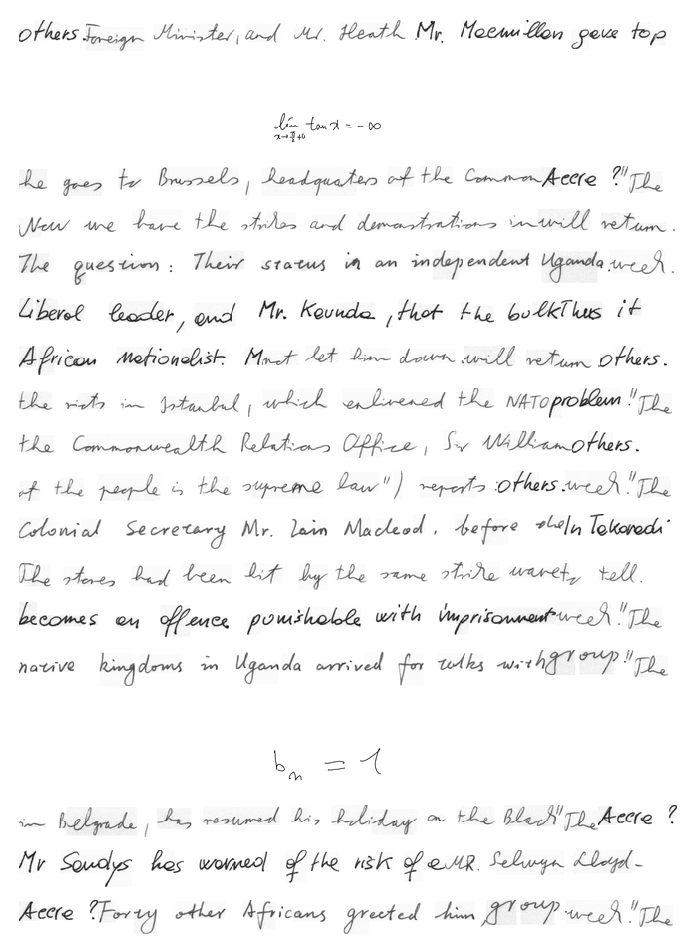 others. Foreign Minister, and Mr. Heath Mr. Macmillan gave top
lim x→π/2+0 tan x = -∞
he goes to Brussels, headquaters of the Common Accra ? " The
Now we have the strikes and demonstrations in will return.
The question : Their status in an independent Uganda. week.
Liberal leader, and Mr. Kaunda, that the bulk Thus it
African nationalist. Must let him down. will return others.
the riots in Istanbul, which enlivened the NATO problem. " The
the Commonwealth Relations Office, Sir William others.
of the people is the supreme law") reports : others. week. " The
Colonial Secretary Mr. Iain Macleod, before she In Takoradi
The stores had been hit by the same strike wave tell.
becomes an offence punishable with imprisonment week. " The
native kingdoms in Uganda arrived for talks with group. " The
b_n = 1
in Belgrade, has resumed his holiday on the Black " The Accra ?
Mr Sandys has warned of the risk of a MR. Selwyn Lloyd-
Accra ? Forty other Africans greeted him group week. " The